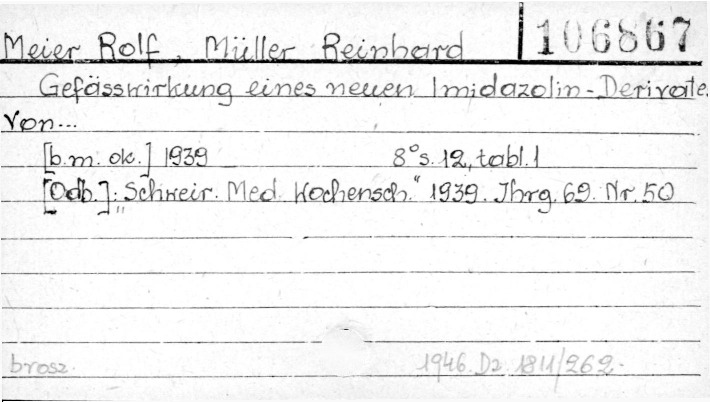 Meier Rolf, Müller Reinhard 106867
Gefässwirkung eines neuen Imidazolin-Derivate.
Von...
[b.m. ok.] 1939 8° s. 12, tabl. 1
[Odb.]: „Schweir. Med. Wochensch." 1939. Jhrg. 69. Nr. 50
brosz. 1946. Dz. 1811/262.